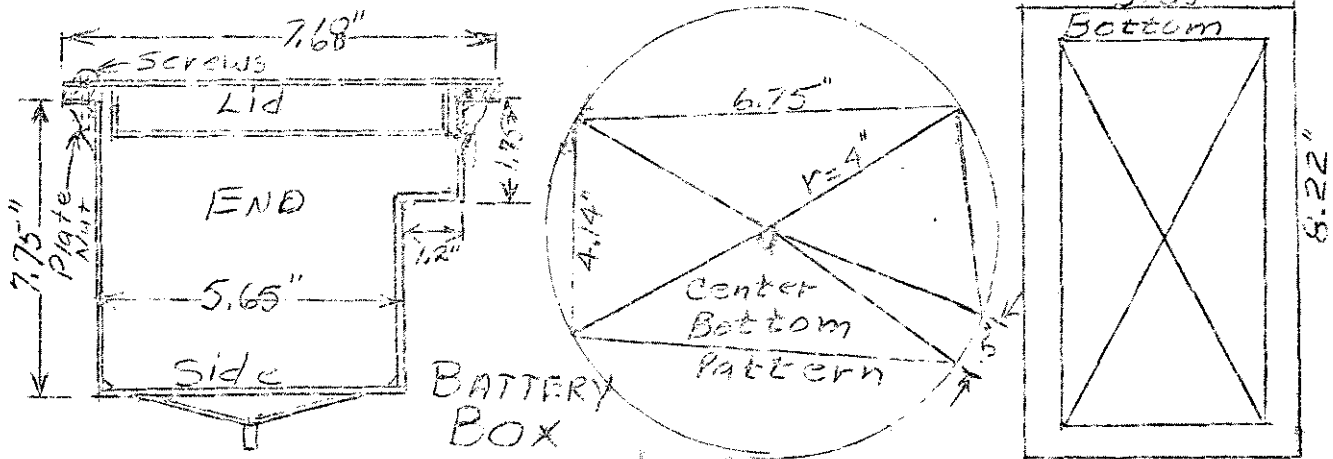 7.68"
Screws
Lid
Plate
Nut
7.75"
1.75"
END
1.2"
5.65"
Side
BATTERY
BOX
6.75"
r=4"
4.14"
Center
Bottom
Pattern
Bottom
8.22"